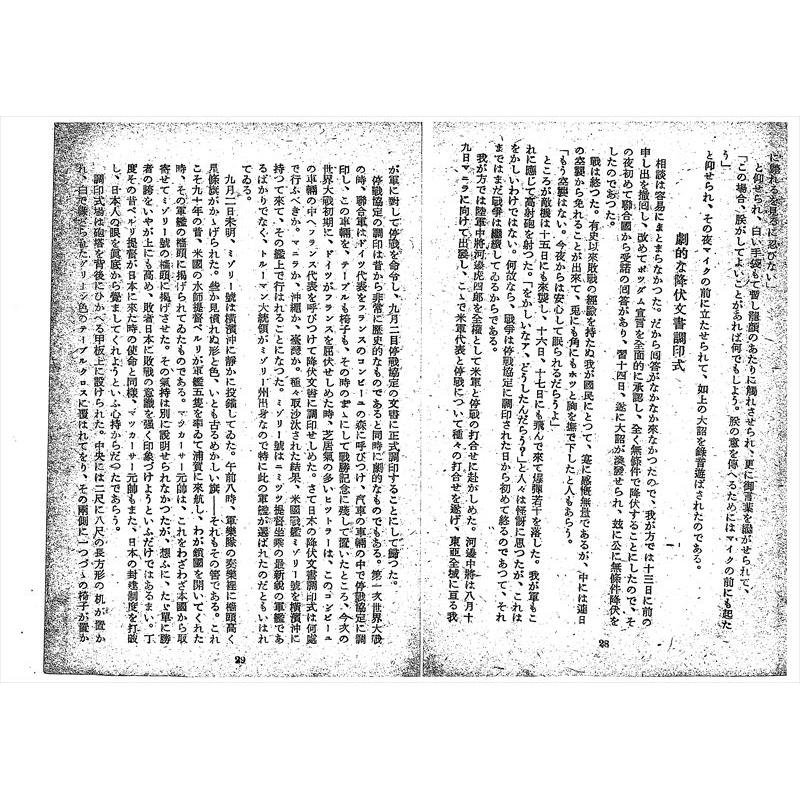 に陷れるを見るに忍びない」
と仰せられ、白い手袋もて暫し龍顏のあたりに觸れさせられ、更に御言葉を繼がせられて、
「この場合、朕がしてよいことがあれば何でもしよう。朕の意を傳へるためにはマイクの前にも起た
う」
と仰せられ、その夜マイクの前に立たせられて、如上の大詔を錄音遊ばされたのである。
劇的な降伏文書調印式
相談は容易にまとまらなかつた。だから囘答がなかなか來なかつたので、我が方では十三日に前の
申し出を撤囘し、改めてポツダム宣言を全面的に承認し、全く無條件で降伏することにしたので、そ
の夜初めて聯合國から受諾の囘答があり、翌十四日、遂に大詔が渙發せられ、玆に公に無條件降伏を
したのであつた。
戰は終つた。有史以來敗戰の經驗を持たぬ我が國民にとつて、寔に感慨無量であるが、中には連日
の空襲から免れることが出來て、兎にも角にもホツと胸を撫で下した人もあらう。
「もう空襲はない。今夜からは安心して眠られるだらうよ」
ところが敵機は十五日にも來襲し、十六日、十七日にも飛んで來て爆彈若干を落した。我が軍もこ
れに應じて高射砲を射つた。「をかしいなア、どうしたんだらう?」と人々は怪訝に思つたが、これは
をかしいわけではない。何故なら、戰爭は停戰協定に調印された日から初めて終るのであつて、それ
まではまだ戰爭は繼續してゐるからである。
我が方では陸軍中將河邊虎四郎を全權として米軍と停戰の打合せに赴かしめた。河邊中將は八月十
九日、マニラに向けて出發し、こゝで米軍代表と停戰について種々の打合せを遂げ、東亞全域に亘る我
28
が軍に對して停戰を命令し、九月二日停戰協定の文書に正式調印することにして歸つた。
停戰協定の調印は昔から非常に歷史的なものであると同時に劇的なものでもある。第一次世界大戰
の時、聯合軍はドイツ代表をフランスのコンピーユの森に呼びつけ、汽車の車輛の中で停戰協定に調
印し、この車輛を、テーブルも椅子も、その時のまゝにして戰勝記念に殘して置いたところ、今次の
世界大戰初期に、ドイツがフランスを屈伏せしめた時、芝居氣の多いヒツトラーは、このコンピーユ
の車輛の中へフランス代表を呼びつけて降伏文書に調印せしめた。さて日本の降伏文書調印式は何處
で行ふべきか。マニラか、沖繩か、臺灣か。種々取沙汰された結果、米國戰艦ミゾリー號を橫濱沖に
持つて來て、その艦上で行はれることになつた。ミゾリー號はニミツツ提督坐乘の最新銳の軍艦であ
るばかりでなく、トルーマン大統領がミゾリー州出身なので特に此の軍艦が選ばれたのだともいはれ
てゐる。
九月二日未明、ミゾリー號は橫濱沖に靜かに投錨してゐた。午前八時、軍樂隊の奏樂裡に檣頭高く
星條旗がかゝげられた。些か見慣れぬ形と色、いとも古るめかしい旗――それもその筈である。これ
こそ九十年の昔、米國の水師提督ペルリが軍艦五隻を率ゐて浦賀に來航し、わが鎖國を開いてくれた
時、その軍艦の檣頭に揭げられてゐたものである。マツカーサー元帥は、これをわざわざ本國から取
寄せてミゾリー號の檣頭に揭げさせた。その氣持は別に說明せられなかつたが、想ふに、たゞ單に勝
者の誇をいやが上にも高め、敗者日本に敗戰の意識を强く印象づけようといふだけではあるまい。丁
度その昔ペルリ提督が日本に來た時の使命と同樣、マツカーサー元帥もまた、日本の封建制度を打破
し、日本人の眼を眞底から覺ましてくれようといふ心持からだつたであらう。
調印式場は砲塔を背後にひかへる甲板上に設けられた。中央には二尺に八尺の長方形の机が置か
れ、白で緣どられたグリーン色のテーブルクロスに覆はれてをり、その兩側に一つづゝの椅子が置か
29